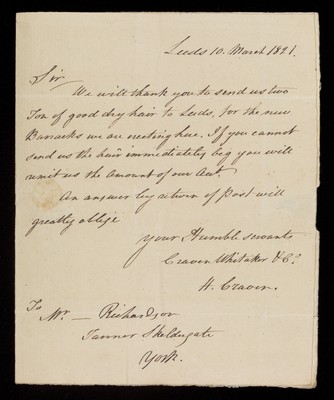 Leeds 10. March 1821.
Sir
We will thank you to send us two
Ton of good dry hair to Leeds, for the new
Barracks we are erecting here. If you cannot
send us the hair immediately beg you will
remit us the Amount of our Acct
An answer by return of post will
greatly oblige
your Humble servants
Craven Whitaker & Co.
H. Craven.
To
Mr — Richardson
Tanner Skeldergate
York.